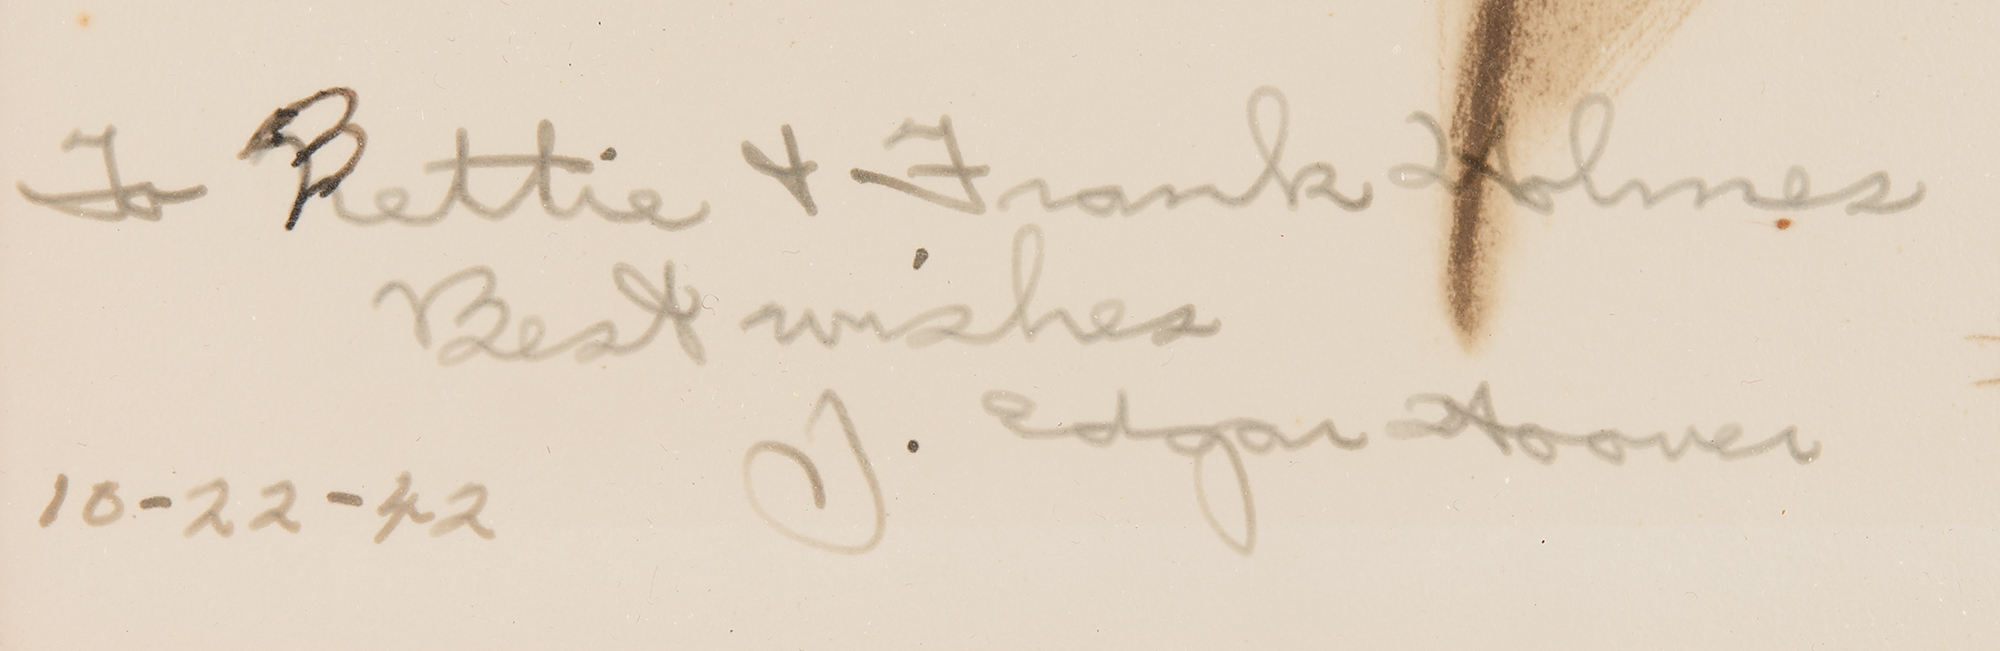 To Bettie & Frank Holmes
Best wishes
J. Edgar Hoover
10-22-42